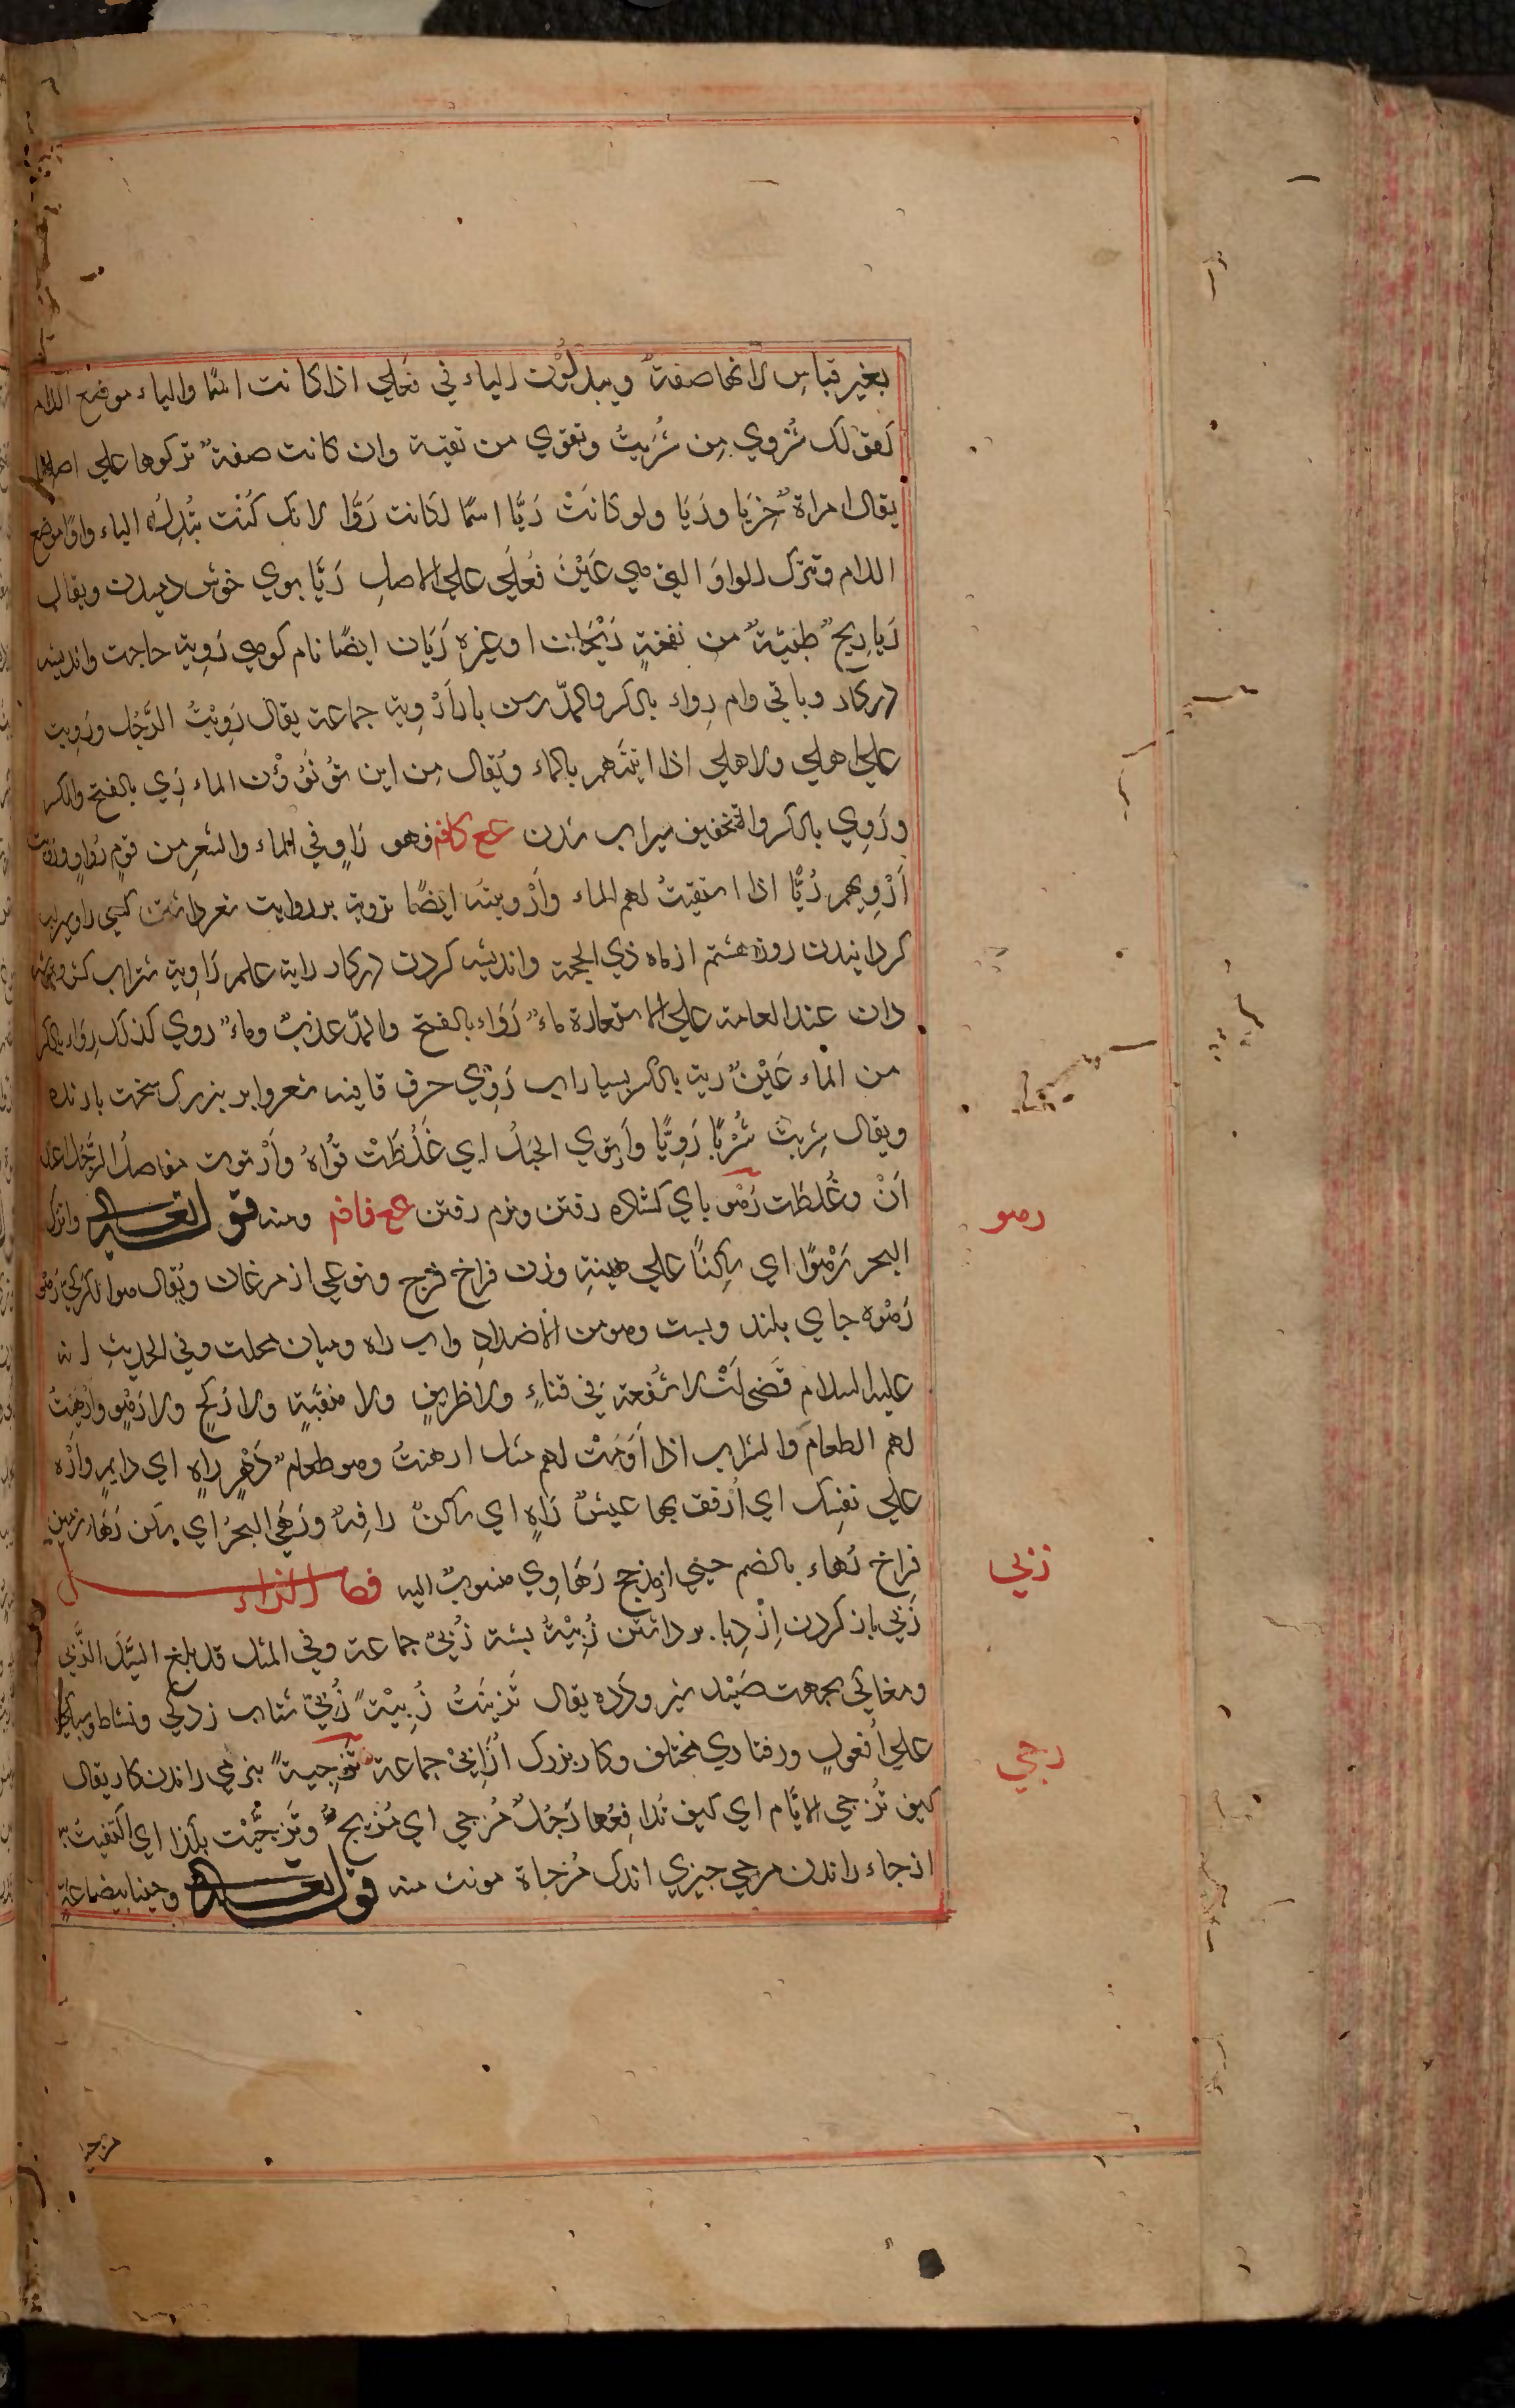 بغير قياس لانها صفة ويبدلون الياء في فعلي اذا كانت اسما والياء موضع اللام
كقولك شروي من شريت وتقوي من تقية وان كانت صفة تركوها علي اصلها
يقال امراة خزيا وريا ولو كانت ريا اسما لكانت روا لانك كنت تبدل الياء واوا موضع
اللام وتترك الواو التي هي عين فعلي علي الاصل ريا بوي خوش دميدن ويقال
ريا ريح طيبة من نفحة ريحان او غيره ريان ايضا نام كوهي روية حاجت وانديشه
دركار وباقي وام رواء بالكسر والمد رسن بار اروية جماعة يقال رويت الرجل ورويت
علي اهلي ولاهلي اذا اتيتهم بالماء ويقال من اين تؤن الماء ري بالفتح والكسر
وروي بالكسر والتخفيف سيراب شدن عع كافم فهو راو في الماء والشعر من قوم رواة
أرويهم ريا اذا استقيت لهم الماء وأرويته ايضا تروية بر روايت شعر داشتن كسي را وسيراب
كردانيدن روز هشتم از ماه ذي الحجة وانديشه كردن دركار راية علم راوية شتراب كش
دان عند العامة علي الاستعارة ماء رواء بالفتح والمد عذب وماء روي كذلك رواء بالكسر
من الماء عين رية بالكسر بسيار اب روي حرف قافيه شعر وابر بزرك سخت بارنده
ويقال شربت شربا رويا وارتوي الحبل اي غلظت قواه وارتوت مفاصل الرجل اعتد
ان وغلظت رهو باي كشاده رفتن ونرم رفتن عع فافم ومنه قوله تعالي واترك
رهو
البحر رهوا اي ساكنا علي هينة وزن فراخ فرج ونوعي از مرغان ويقال هو الكركي رهو
رهوه جاي بلند وپست وهو من الاضداد واب راه وميان محلت وفي الحديث انه
عليه السلام قضي ان لا شفعة في فناء ولا طريق ولا منقبة ولا ركح ولا رهو وارهيت
لهم الطعام والشراب اذا ادمت لهم مثل ارهنت وهو طعام راهن راه اي دايم واره
علي نفسك اي ارفق بها عيش راه اي ساكن رافه ورهي البحر اي سكن رهاء زمين
فراخ رهاء بالضم حيي از مذحج رهاوي منسوب اليه فصل الزاء
زبي
زبي باز كردن ازدبا برداشتن زبية پشته زبي جماعة وفي المثل قد بلغ السيل الزبي
ومغاكي بجهت صيد شير ودده يقال تزبيت زبية زبي شتاب زدكي ونشاط
علي افعول ورفتاري مختلف وكار بزرك ازابي جماعة تزجية بنرمي راندن كار يقال
زجي
كيف تزجي الايام اي كيف تدافعها رجل مزجي اي مزيج وتزجيت بكذا اي اكتفيت به
ازجاء راندن مزجي چيزي اندك مزجاة مونث منه قوله تعالي وجئنا ببضاعة
مزجاة